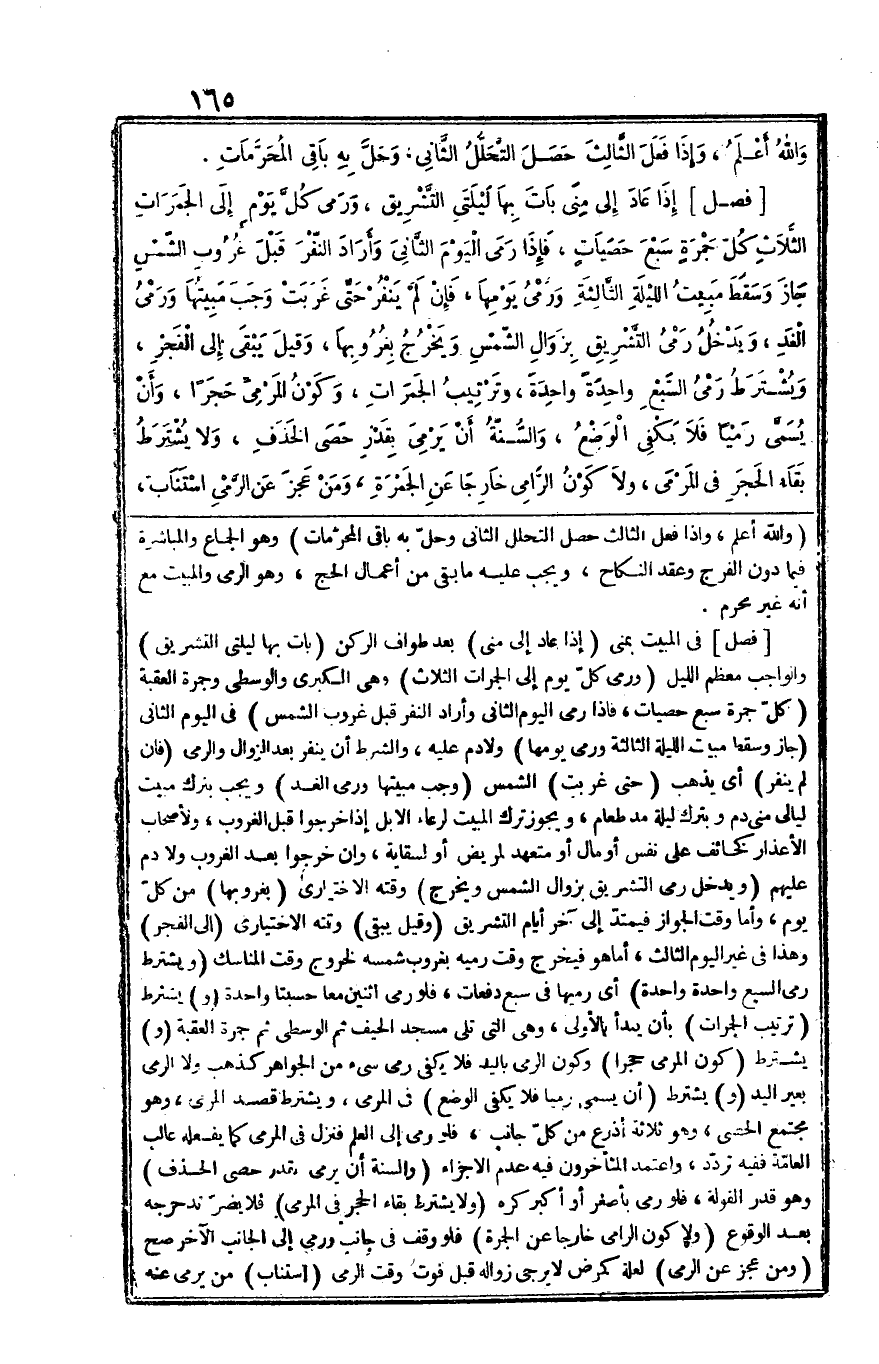 ١٦٥
وَاللهُ أَعْلَمُ ، وَإِذَا فَعَلَ الثَّالِثَ حَصَلَ التَّحَلُّلُ الثَّانِى ، وَحَلَّ بِهِ بَاقِى الْمُحَرَّمَاتِ .
[ فصل ] إِذَا عَادَ إِلى مِنًى بَاتَ بِهَا لَيْلَتَىِ التَّشْرِيقِ ، وَرَمَى كُلَّ يَوْمٍ إِلَى الجَمَرَاتِ
الثَّلَاثِ كُلّ جَمْرَةٍ سَبْعَ حَصَيَاتٍ ، فَإِذَا رَمَى الْيَوْمَ الثَّانِىَ وَأَرَادَ النَّفْرَ قَبْلَ غُرُوبِ الشَّمْسِ
جَازَ وَسَقَطَ مَبِيتُ الليْلَةِ الثَّالِثَةِ وَرَمْىُ يَوْمِهَا ، فَإِنْ لَمْ يَنْفُرْ حَتَّى غَرَبَتْ وَجَبَ مَبِيتُهَا وَرَمْىُ
الْغَدِ ، وَيَدْخُلُ رَمْىُ التَّشْرِيقِ بِزَوَالِ الشَّمْسِ وَيَخْرُجُ بِغُرُوبِهَا ، وَقِيلَ يَبْقَى إِلى الْفَجْرِ ،
وَيُشْتَرَطُ رَمْىُ السَّبْعِ وَاحِدَةً وَاحِدَةً ، وَتَرْتِيبُ الجَمَرَاتِ ، وَكَوْنُ المَرْمِىِّ حَجَرًا ، وَأَنْ
يُسَمَّى رَمْيًا فَلَا يَكْفِى الْوَضْعُ ، وَالسُّنَّةُ أَنْ يَرْمِىَ بِقَدْرِ حَصَى الخَذَفِ ، وَلَا يُشْتَرَطُ
بَقَاءُ الحَجَرِ فِى المَرْمَى ، وَلَا كَوْنُ الرَّامِى خَارِجًا عَنِ الجَمْرَةِ ، وَمَنْ عَجَزَ عَنِ الرَّمْىِ اسْتَنَابَ ،
( والله أعلم ، واذا فعل الثالث حصل التحلل الثانى وحلّ به باقى المحرّمات ) وهو الجماع والمباشرة
فيما دون الفرج وعقد النكاح ، ويجب عليه مابقى من أعمال الحج ، وهو الرمى والمبيت مع
أنه غير محرم .
[ فصل ] فى المبيت بمنى ( إذا عاد إلى منى ) بعد طواف الركن ( بات بها ليلتى التشريق )
والواجب معظم الليل ( ورمى كلّ يوم إلى الجرات الثلاث ) وهى الكبرى والوسطى وجرة العقبة
( كلّ جمرة سبع حصيات ، فاذا رمى اليوم الثانى وأراد النفر قبل غروب الشمس ) فى اليوم الثانى
( جاز وسقط مبيت الليلة الثالثة ورمى يومها ) ولادم عليه ، والشرط أن ينفر بعد الزوال والرمى ( فان
لم ينفر ) أى يذهب ( حتى غربت ) الشمس ( وجب مبيتها ورمى الغد ) ويجب بترك مبيت
ليالى منى دم وبترك ليلة مد طعام ، ويجوز ترك المبيت لرعاء الابل إذا خرجوا قبل الغروب ، ولأصحاب
الأعذار كخائف على نفس أومال أو متعهد لمريض أو لسقاية ، وإن خرجوا بعد الغروب ولا دم
عليهم ( ويدخل رمى التشريق بزوال الشمس ويخرج ) وقته الاختيارىّ ( بغروبها ) من كلّ
يوم ، وأما وقت الجواز فيمتدّ إلى آخر أيام التشريق ( وقيل يبقى ) وقته الاختيارى ( إلى الفجر )
وهذا فى غير اليوم الثالث ، أماهو فيخرج وقت رميه بغروب شمسه لخروج وقت المناسك ( ويشترط
رمى السبع واحدة واحدة ) أى رميها فى سبع دفعات ، فلو رمى اثنين معا حسبتا واحدة ( و ) يشترط
( ترتيب الجرات ) بأن يبدأ بالأولى ، وهى التى تلى مسجد الخيف ثم الوسطى ثم جرة العقبة ( و )
يشترط ( كون المرمى حجرا ) وكون الرمى باليد فلا يكفى رمى شىء من الجواهر كذهب ولا الرمى
بغير اليد ( و ) يشترط ( أن يسمى رميا فلا يكفى الوضع ) فى المرمى ، ويشترط قصد المرمى ، وهو
مجتمع الحصى ، وهو ثلاثة أذرع من كلّ جانب ، فلو رمى إلى العلم فنزل فى المرمى كما يفعله غالب
العامّة ففيه تردّد ، واعتمد المتأخرون فيه عدم الاجزاء ( والسنة أن يرمى بقدر حصى الخذف )
وهو قدر الفولة ، فلو رمى بأصغر أو أكبر كره ( ولا يشترط بقاء الحجر فى المرمى ) فلا يضرّ تدحرجه
بعد الوقوع ( ولا كون الرامى خارجا عن الجرة ) فلو وقف فى جانب ورمى إلى الجانب الآخر صح
( ومن عجز عن الرمى ) لعلة كمرض لايرجى زواله قبل فوت وقت الرمى ( استناب ) من يرمى عنه